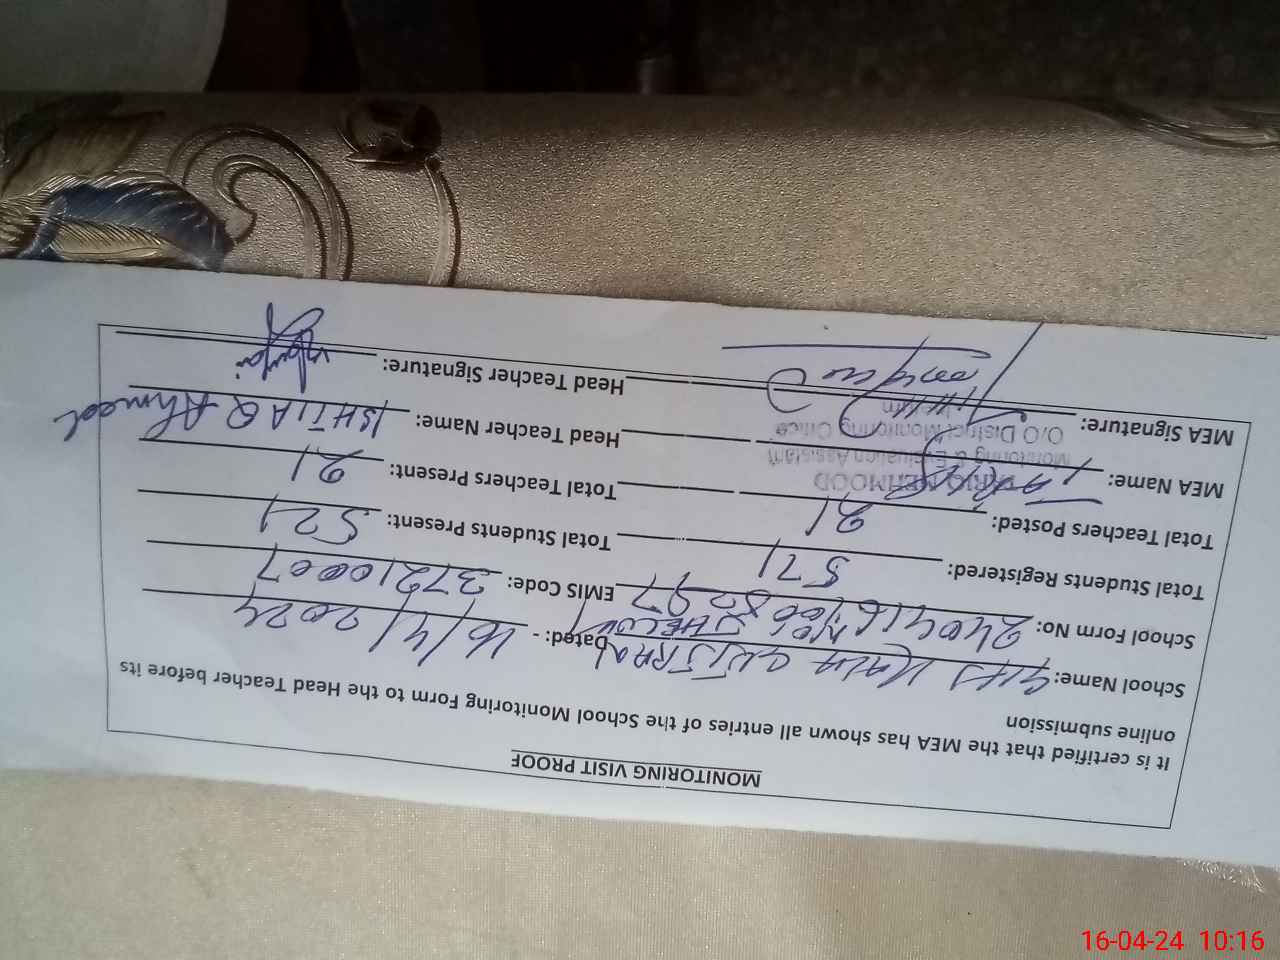 MONITORING VISIT PROOF
It is certified that the MEA has shown all entries of the School Monitoring Form to the Head Teacher before its
online submission
School Name: GHS Dated: - 16/4/2024
School Form No: EMIS Code: 37210007
Total Students Registered: 571 Total Students Present: 521
Total Teachers Posted: 21 Total Teachers Present: 21
MEA Name: Head Teacher Name: ISHTIAQ Ahmad
MEHMOOD
Monitoring & Evaluation Assistant
O/O District Monitoring Office
MEA Signature: Head Teacher Signature:
16-04-24 10:16